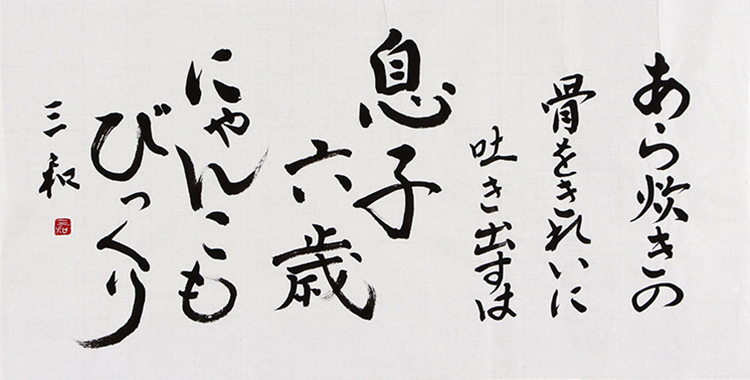 あら炊きの
骨をきれいに
吐き出すは
息子
六歳
にゃんこも
びっくり
三和